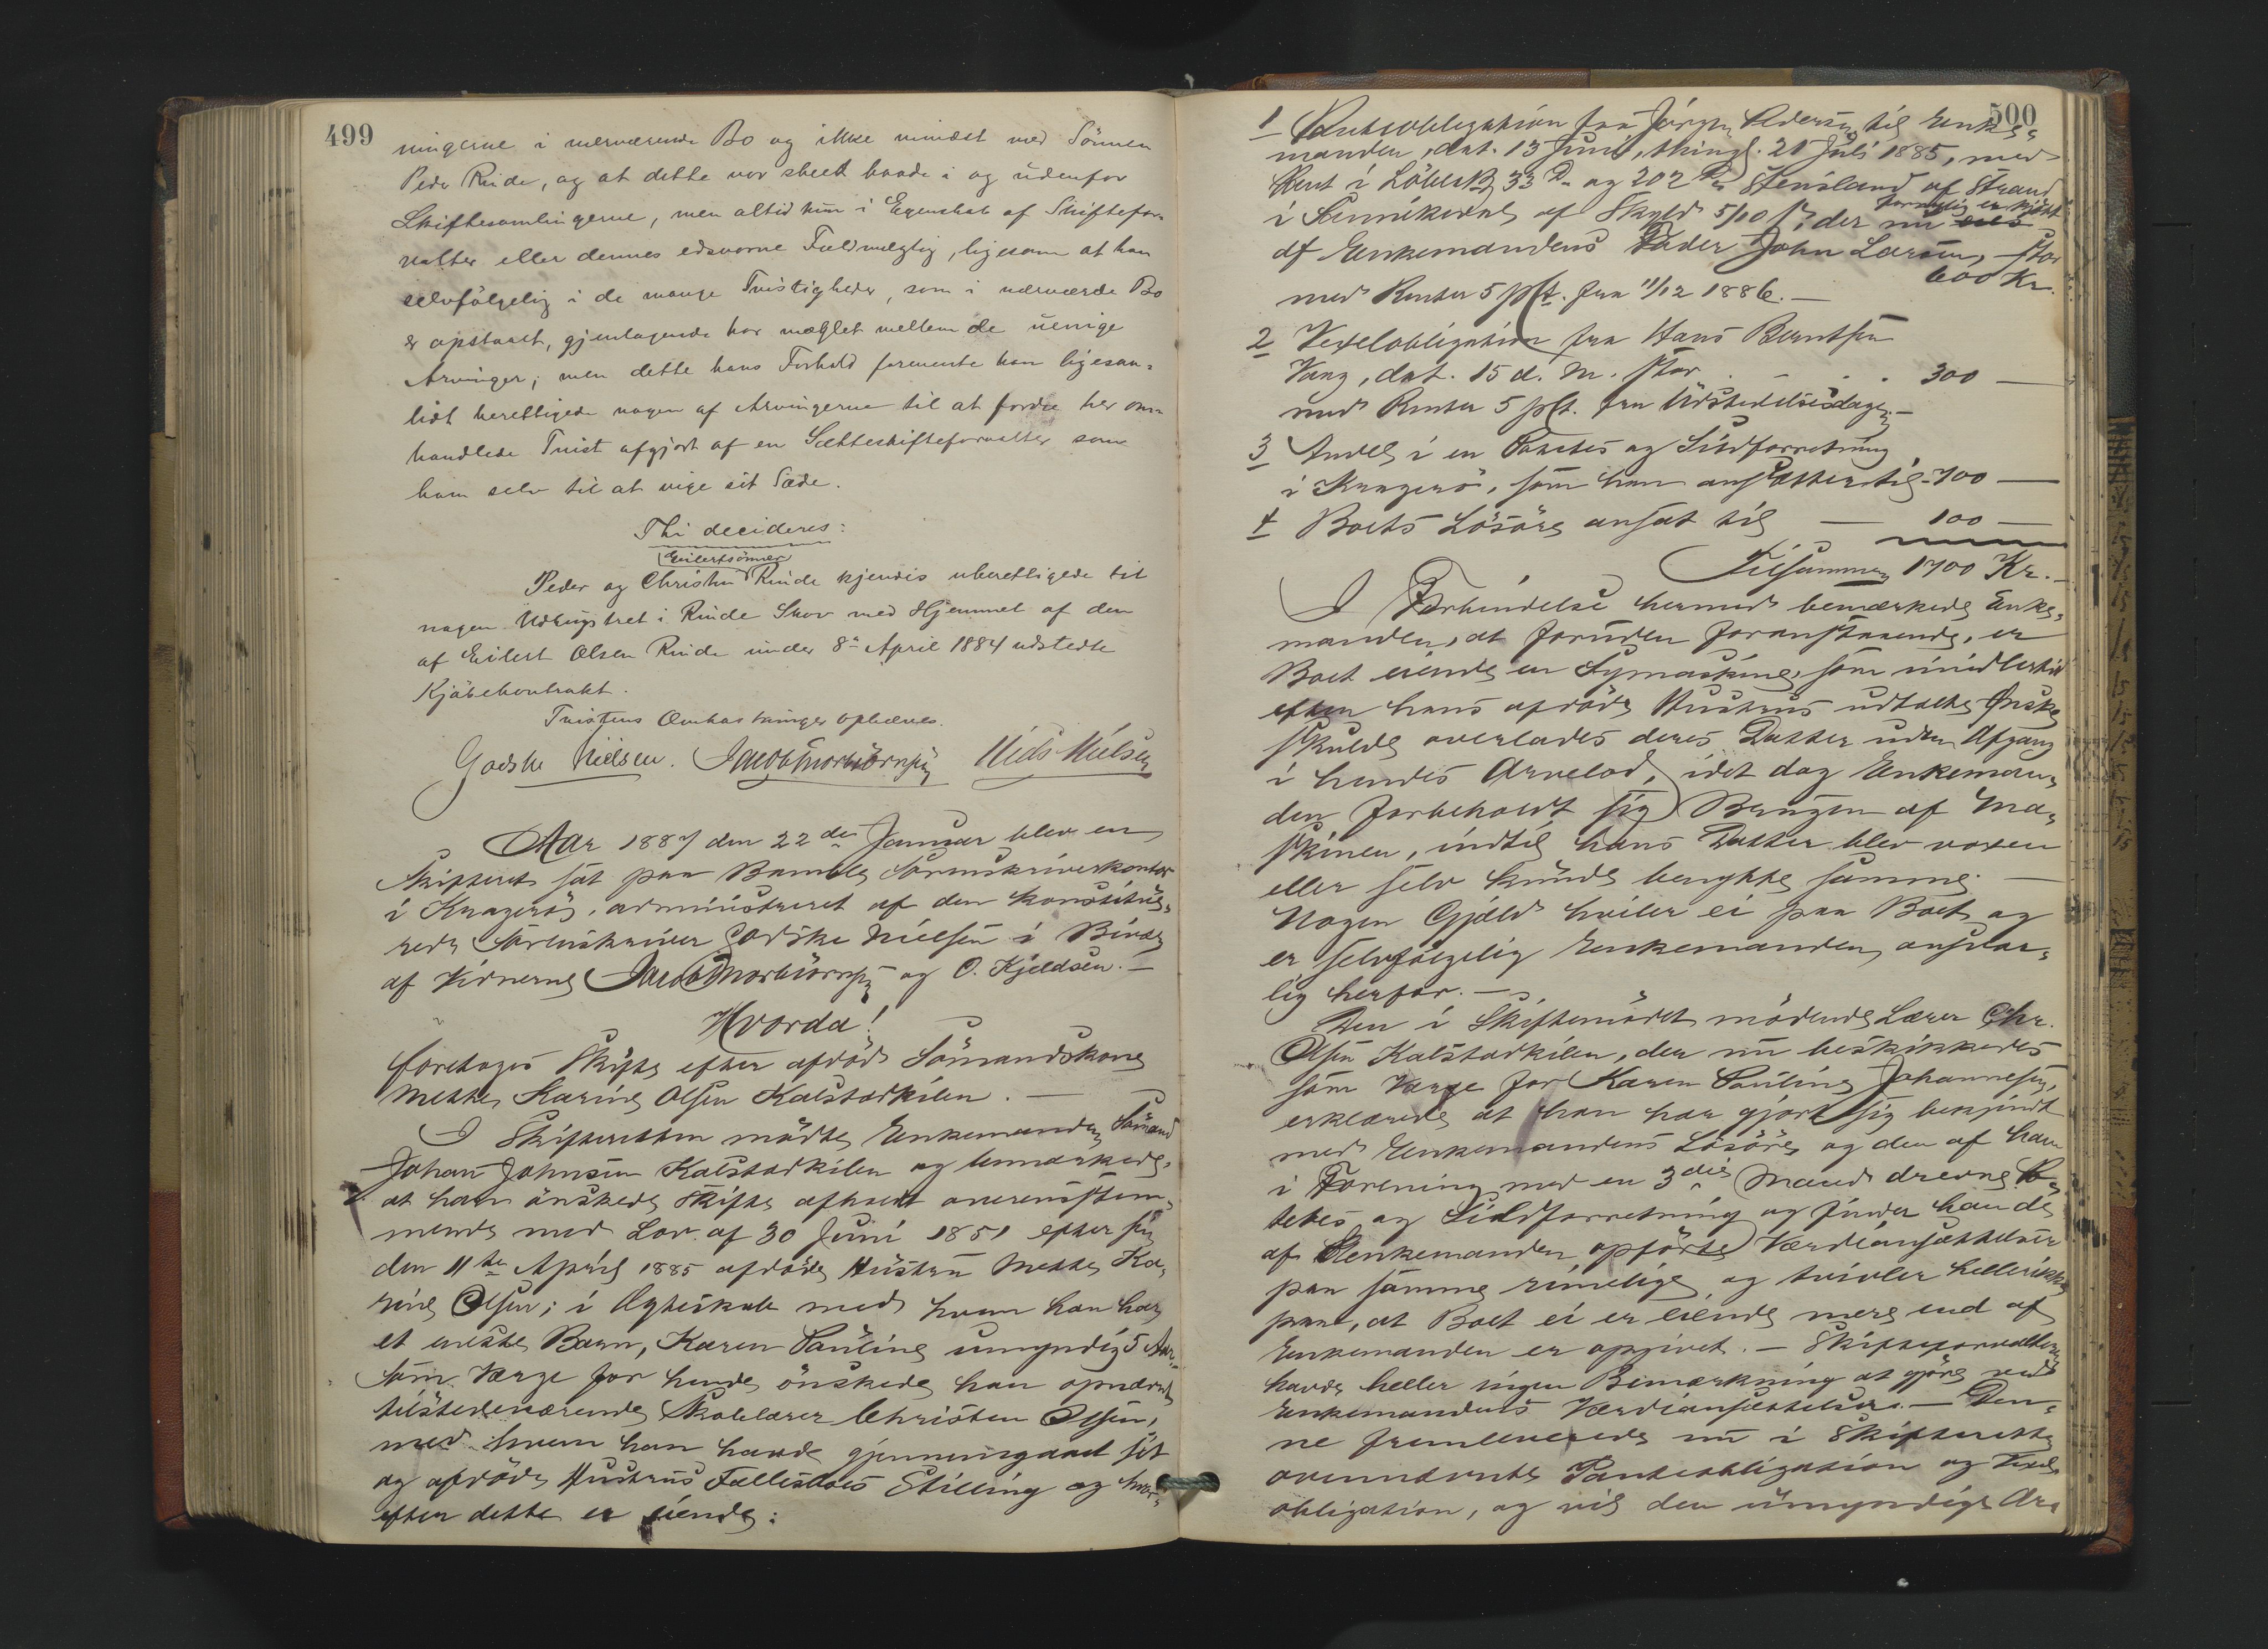 499
ningerne i nærværende Bo og ikke mindst med Sönnen
Peder Rinde, og at dette var skeet baade i og udenfor
Skiftesamlingerne, men altid kun i Egenskab af Skiftefor-
valter eller dennes edsvorne Fuldmægtig, ligesom at han
selvfölgelig i de mange Tvistigheder, som i nærværde Bo
er opstaaet, gjentagende har mæglet mellem de uenige
Arvinger; men dette hans Forhold formente han ligesaa-
lidt berettigede nogen af Arvingerne til at fordre her om-
handlede Tvist afgjort af en Sætteskifteforvalter som
ham selv til at vige sit Sæde.
Thi decideres:
Eilertsönner
Peder og Christen Rinde kjendes uberettigede til
nogen Udhugstret i Rinde Skov med Hjemmel af den
af Eilert Olsen Rinde under 8de April 1884 udstedte
Kjöbekontrakt.
Tvistens Omkostninger ophæves.
Godske Nielsen. Jacob Thorbiörnsen Niels Nielsen
Aar 1887 den 22de Januar blev en
Skifteret sat paa Bamble Sorenskriverkontor
i Kragerö, administreret af den konstitue-
rede Sorenskriver Godske Nielsen i Bivær
af Vidnerne Jacob Thorbiörnsen og O. Kjeldsen. —
Hvorda!
foretoges Skifte efter afdöde Sömandskone
Mette Karine Olsen Kalstadkilen. —
I Skifteretten mödte Enkemanden Sömand
Johan Johnsen Kalstadkilen og bemærkede,
at han önskede Skifte afholdt overensstem-
mende med Lov af 30 Juni 1851 efter sin
den 11te April 1885 afdöde Hustru Mette Ka-
rine Olsen; i Ægteskab med hvem han har
et eneste Barn, Karen Pauline umyndig 5 Aar.
Som Værge for hende önskede han opnævnt
tilstedeværende Skolelærer Christen Olsen,
med hvem han havde gjennemgaaet sit
og afdöde Hustrus Fællesboes Stilling og hvor-
efter dette er eiende:
500
1 Panteobligation fra Jörgen Pedersen til Enke-
manden, dat. 13 Juni, thingl. 21 Juli 1885, med
Pant i Löbe No 33 og 202 Stensland af Strand
i Sannikedal af Skyld 5/10 der nu
af Enkemandens Fader John Larsen, stor
600 Kr.
med Renter 5 pCt. fra 11/12 1886. —
2 Vexelobligation fra Hans Berntsen
Vang, dat. 15 d. M. stor . . . 300 —
med Renter 5 pCt. fra Udstedelsesdagen. —
3 Andel i en Potetes og Sildforretning
i Kragerö, som han ansætter til 700 —
4 Boets Lösöre ansat til — 100 —
Tilsammen 1700 Kr. —
I Forbindelse hermed bemærkede Enke-
manden, at foruden foranstaaende, er
Boet eiende en Symaskine, som imidlertid
efter hans afdöde Hustrus udtalte Önske
skulde overlades deres Datter uden Afgang
i hendes Arvelod, idet dog Enkeman-
den forbeholdt sig Brugen af Ma-
skinen, indtil hans Datter blev voxen
eller selv kunde benytte samme. —
Nogen Gjæld hviler ei paa Boet, og
er selvfölgelig Enkemanden ansvar-
lig herfor. —
Den i Skiftemödet mödende Lærer Chr.
Olsen Kalstadkilen, der nu beskikkedes
som Værge for Karen Pauline Johannesen,
erklærede at han har gjort sig bekjendt
med Enkemandens Lösöre og den af ham
i Forening med en 3die Mand drevne Po-
tetes og Sildforretning og finder han de
af Enkemanden opförte Værdiansættelser
paa samme rimelige og tvivler heller ikke
paa, at Boet ei er eiende mere end af
Enkemanden er opgivet. — Skifteforvalteren
havde heller ingen Bemærkning at gjöre ved
Enkemandens Værdiansættelser. — Den-
ne fremleverede nu i Skifteretten
ovennævnte Panteobligation og Vexel-
obligation, og vil den umyndige Ar-